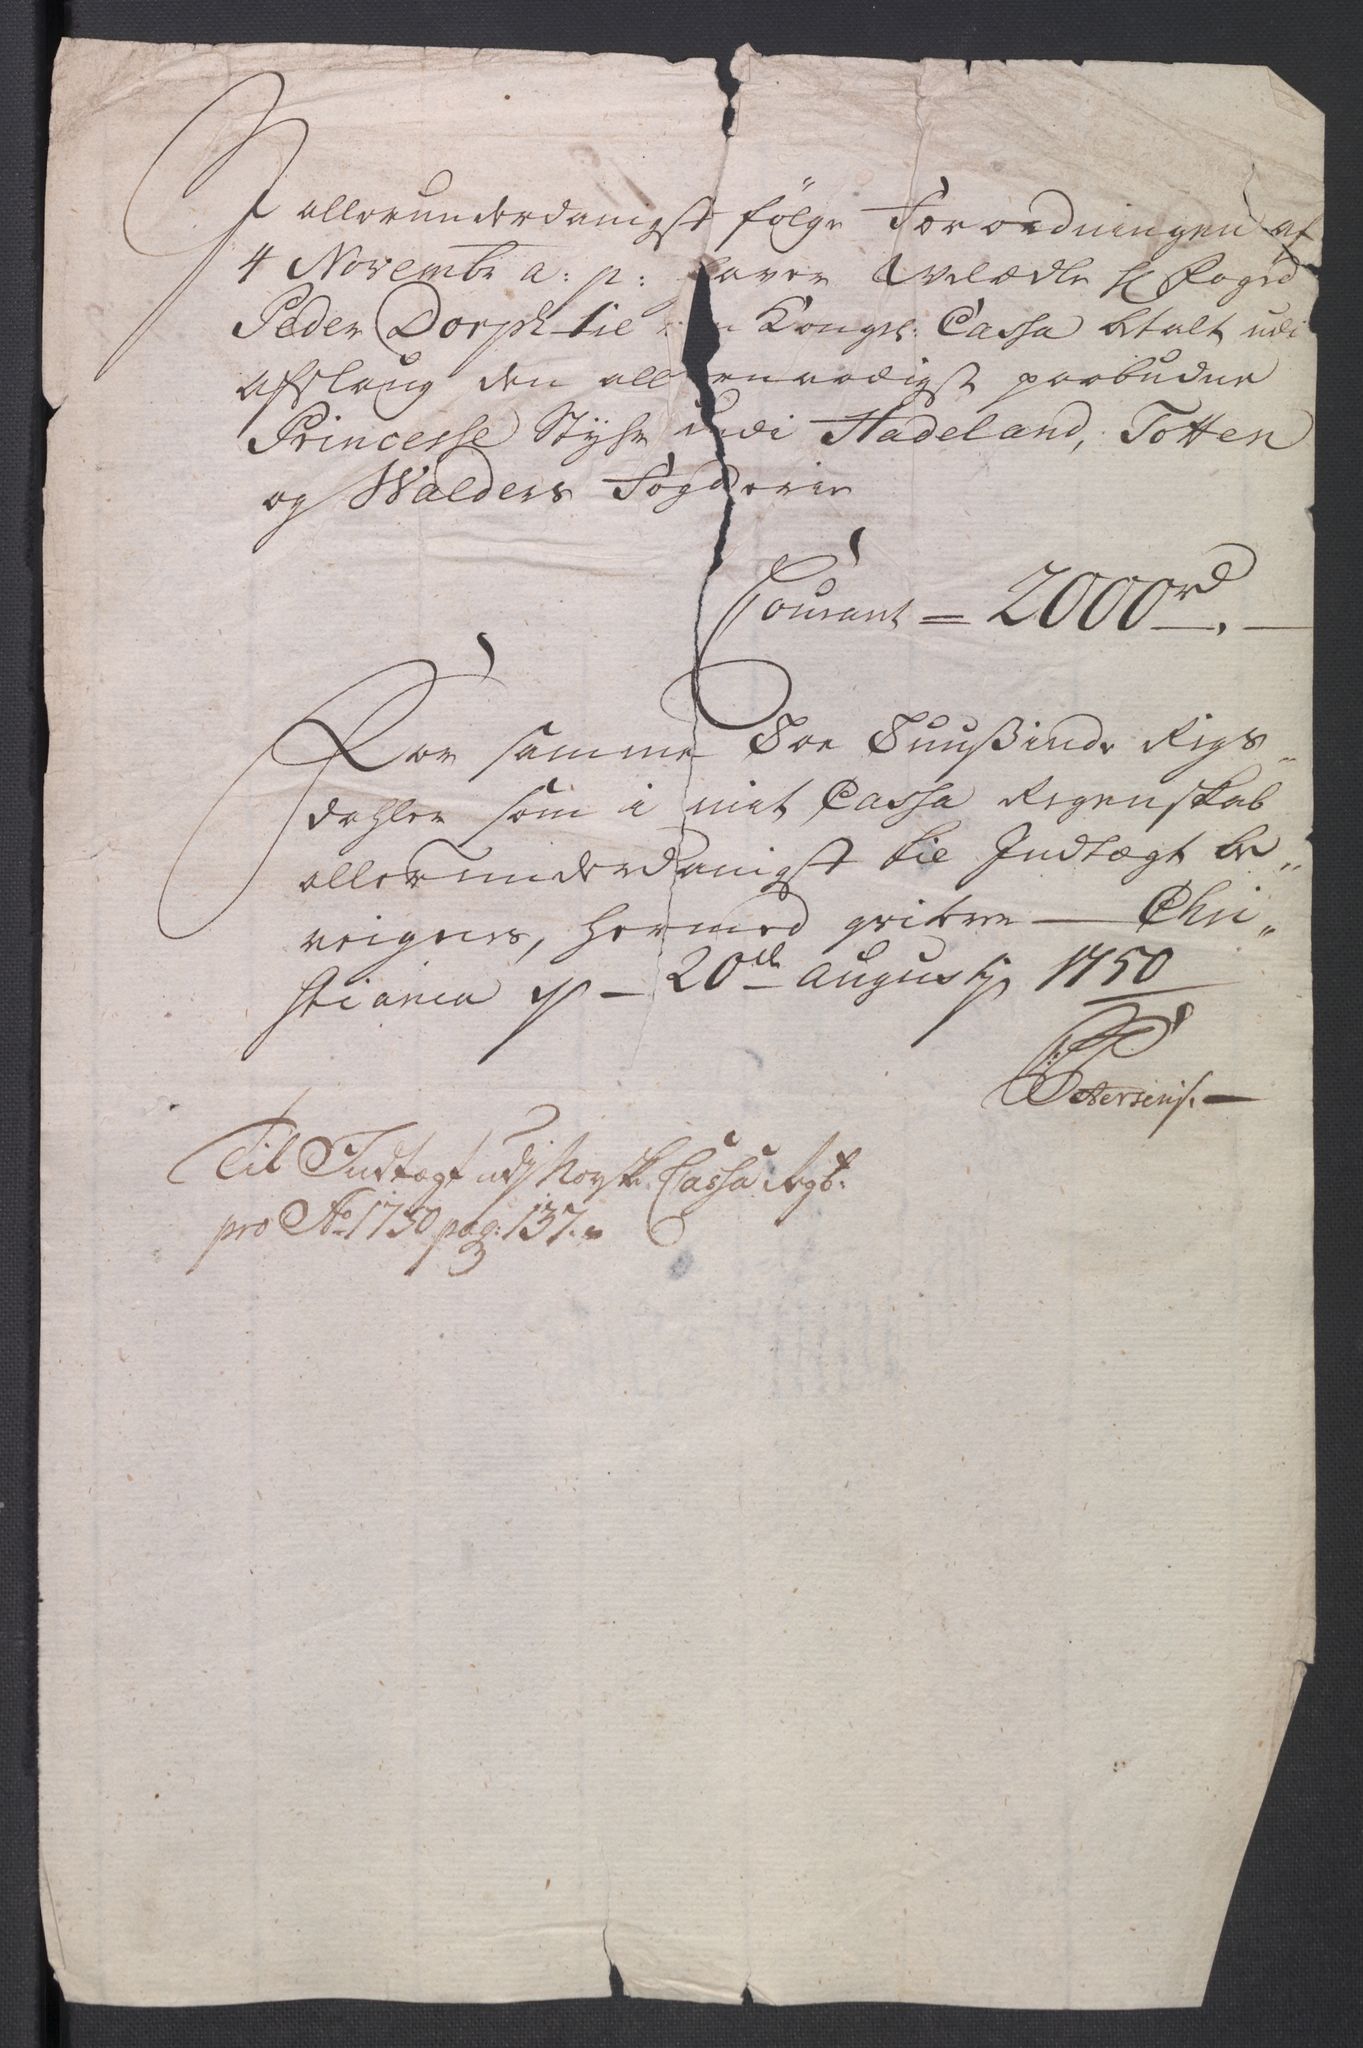 I allerunderdanigst følge Forordningen af
4 Novembr a: p: haver Velædle Hr Foged
Peder Dorph til Kongl: Cassa betalt udi
afslaug den allernaadigst paabudne
Princesse Styhr udi Hadeland, Totten
og Walders Fogderie
Courant = 2000 rd —. —
For samme Toe Tuusinde Rigs„
dahler som i mit Cassa Regenskab
allerunderdanigst til Indtægt be„
reignes, hermed qvitere — Chri„
stiania d — 20de Augustj 1750
Petersen. —
Til Indtægt udj Cassa Regb:
pro Ao 1750 pag: 137.